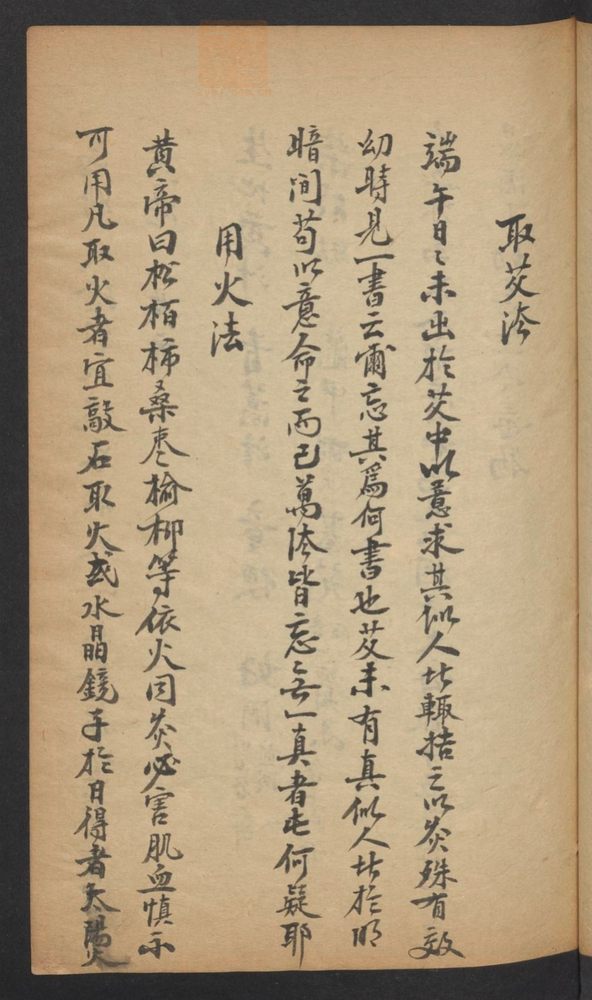 取艾法
端午日〻未出於艾中以意求其似人者輒括之以灸殊有效
幼時見一書云爾忘其為何書也艾未有真似人者於明
暗間苟以意命之而已萬法皆妄無一真者此何疑耶
用火法
黄帝曰松栢柿桑枣榆柳等依火因灸必害肌血慎不
可用凡取火者宜敲石取火或水晶鏡子於日得者太陽火